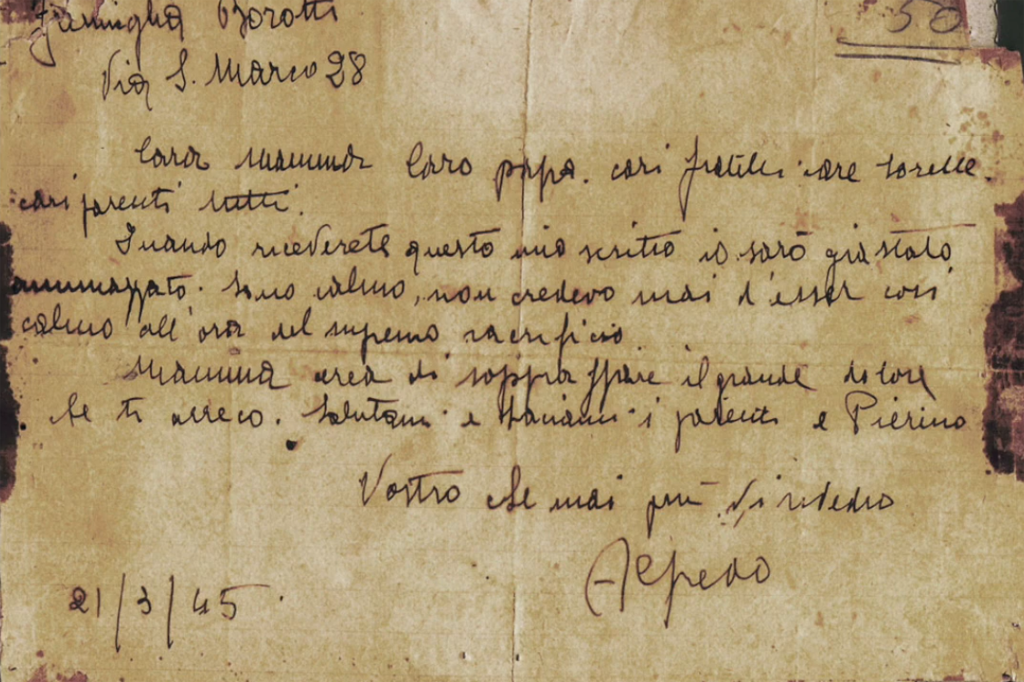 Famiglia Borotti
50
Via S. Marco 28
Cara mamma Caro papà. cari fratelli care sorelle.
cari parenti tutti.
Quando riceverete questo mio scritto io sarò già stato
ammazzato. Sono calmo, non credevo mai d'esser così
calmo all'ora del supremo sacrificio.
Mamma cerca di sopprafffare il grande dolore
che ti arreco. Salutami e baciami i parenti e Pierino
Vostro che mai più vi rivedrò
Alfredo
21/3/45.